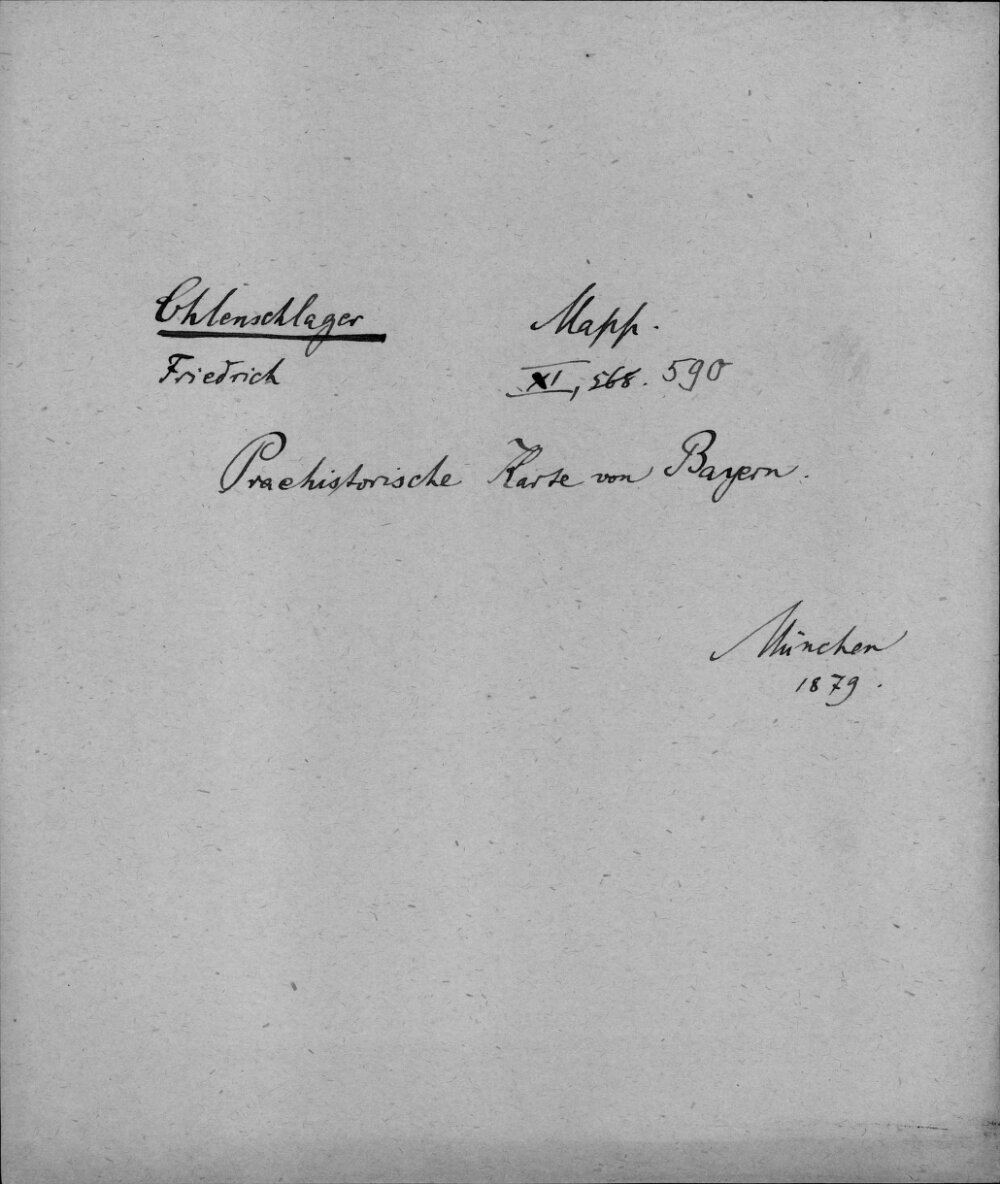 Ohlenschlager
Friedrich
Mapp.
XI, 568. 590
Praehistorische Karte von Bayern.
München
1879.